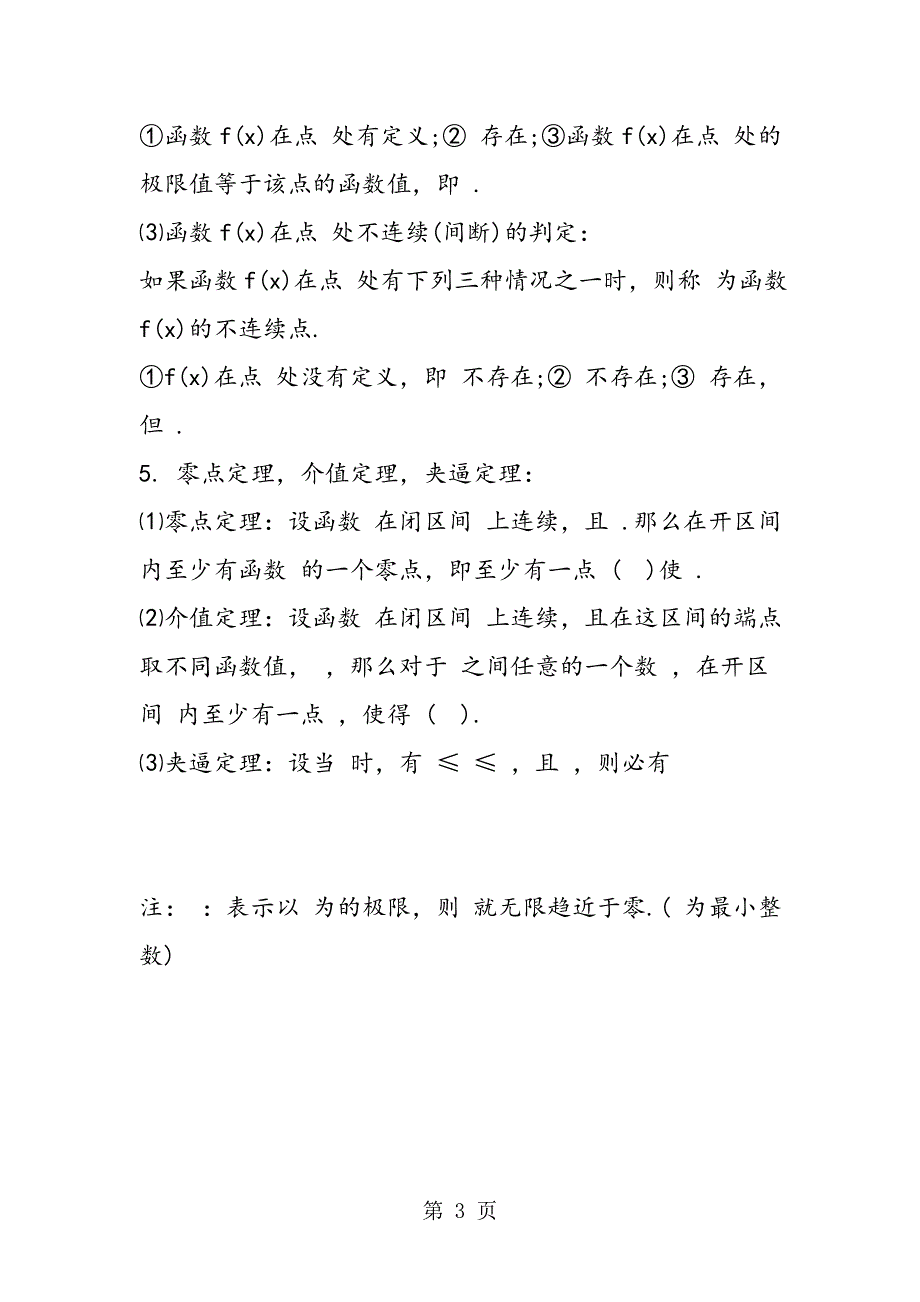 ①函数f(x)在点 处有定义;② 存在;③函数f(x)在点 处的
极限值等于该点的函数值，即 .
⑶函数f(x)在点 处不连续(间断)的判定：
如果函数f(x)在点 处有下列三种情况之一时，则称 为函数
f(x)的不连续点.
①f(x)在点 处没有定义，即 不存在;② 不存在;③ 存在，
但 .
5. 零点定理，介值定理，夹逼定理：
⑴零点定理：设函数 在闭区间 上连续，且 .那么在开区间
内至少有函数 的一个零点，即至少有一点 ( )使 .
⑵介值定理：设函数 在闭区间 上连续，且在这区间的端点
取不同函数值， ，那么对于 之间任意的一个数 ，在开区
间 内至少有一点 ，使得 ( ).
⑶夹逼定理：设当 时，有 ≤ ≤ ，且 ，则必有
注： ：表示以 为的极限，则 就无限趋近于零.( 为最小整
数)
第 3 页